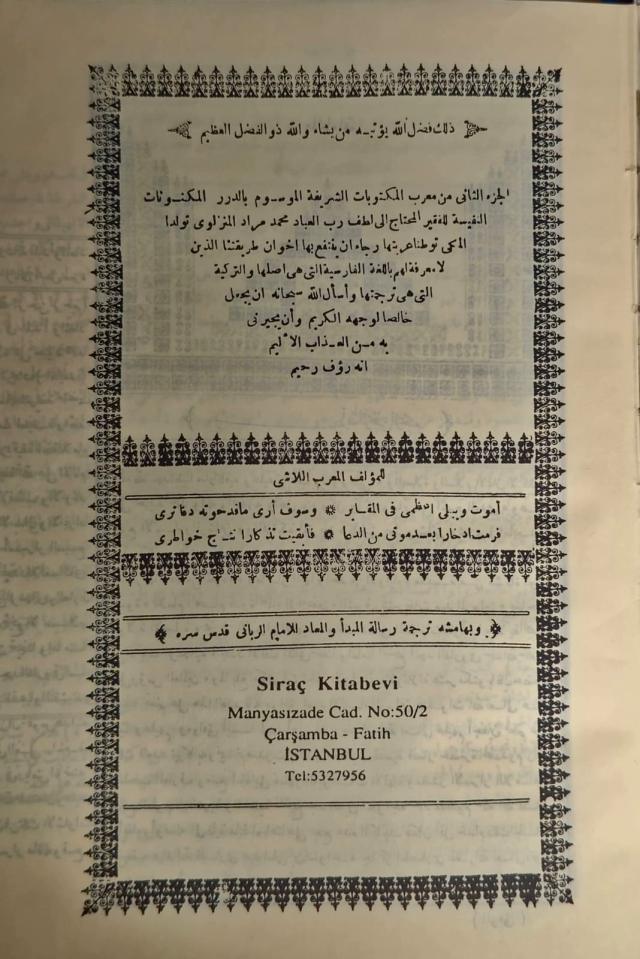 ذلك فضل الله يؤتيه من يشاء والله ذو الفضل العظيم
الجزء الثانى من معرب المكتوبات الشريفة الموسوم بالدرر المكنونات
النفيسة للفقير المحتاج الى لطف رب العباد محمد مراد المنزلوى تولدا
المكى توطنا عربتها رجاء ان ينتفع بها اخوان طريقتنا الذين
لا معرفة لهم باللغة الفارسية التى هى اصلها والتركية
التى هى ترجمتها وأسأل الله سبحانه ان يجعل
خالصا لوجهه الكريم وأن يجيرنى
به من العذاب الأليم
انه رؤف رحيم
للمؤلف المعرب اللاشى
أموت ويبلى اعظمى فى المقابر ❋ وسوف أرى ماقد حوته دفاترى
فرمت ادخارا بعد موتى من الدعا ❋ فأبقيت تذكارا نتائج خواطرى
وبهامشه ترجمة رسالة المبدأ والمعاد للامام الربانى قدس سره
Siraç Kitabevi
Manyasızade Cad. No:50/2
Çarşamba - Fatih
İSTANBUL
Tel:5327956